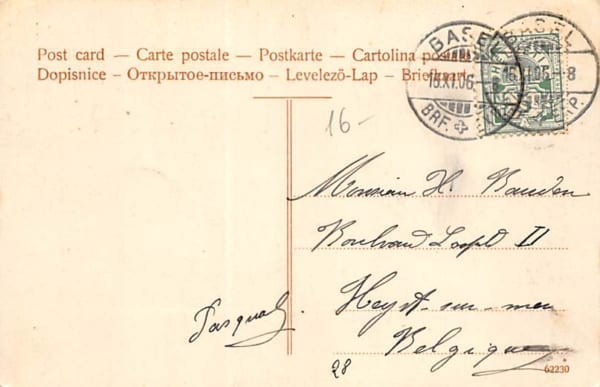 Post card — Carte postale — Postkarte — Cartolina postale
Dopisnice — Открытое-письмо — Levelező-Lap — Briefkaart
BASEL
16.XI.06.
BRF.
BASEL
16.XI.06.-8
16-
Monsieur H.
Boulevard Léopold II
Heyst-sur-mer
Belgique
Pasqual
28
62230